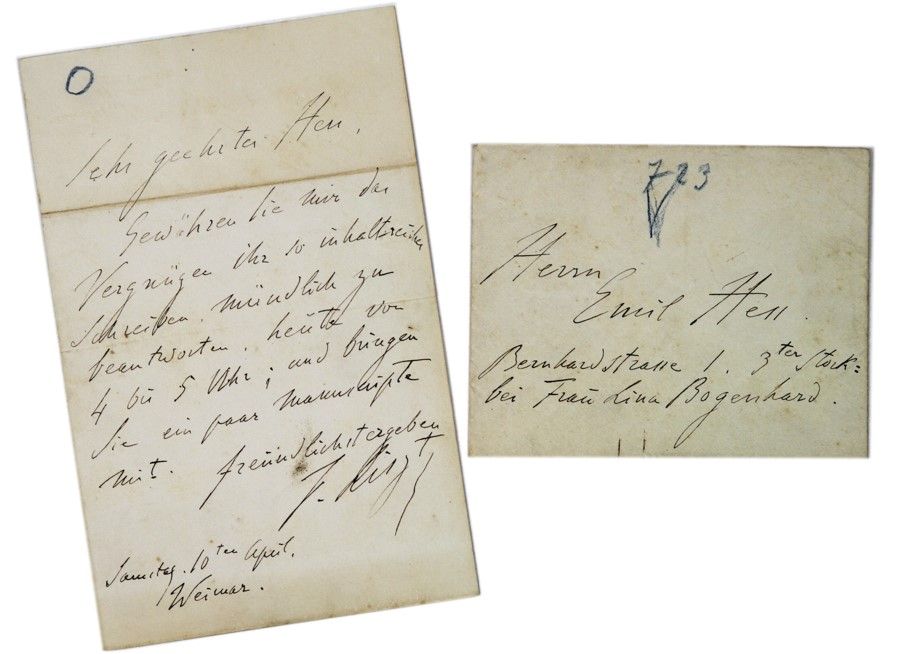 O
Sehr geehrter Herr,
Gewähren Sie mir das
Vergnügen ihr so inhaltsreiches
Schreiben, mündlich zu
beantworten, heute von
4 bis 5 Uhr; und bringen
Sie ein paar Manuscripte
mit. freundlichst ergeben
F. Liszt
Samstag, 10ten April.
Weimar.
723
Herrn
Emil Hess.
Bernhardstrasse 1. 3ter Stock=
bei Frau Lina Bogenhard.